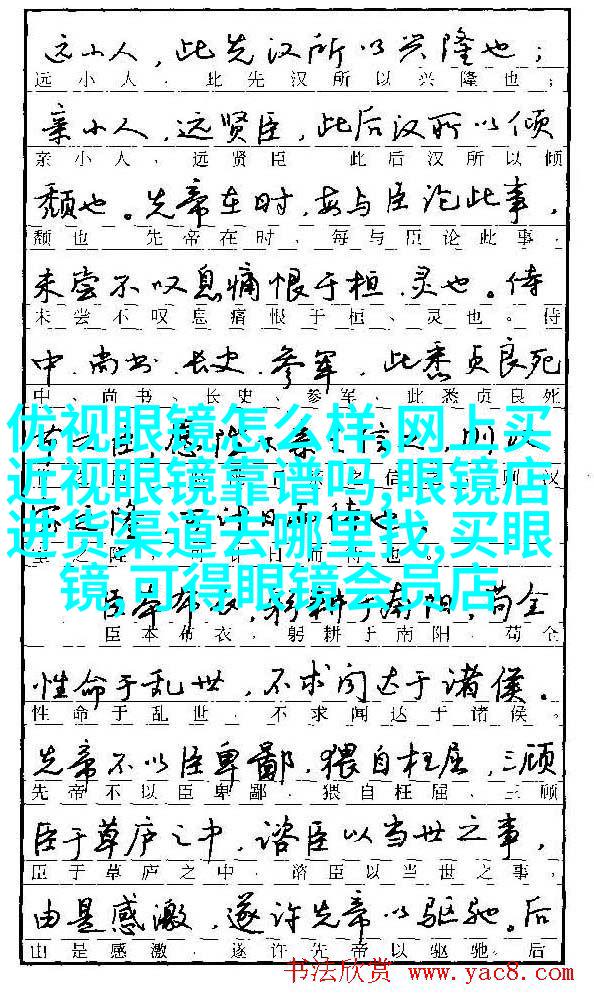 远小人，此先汉所以兴隆也；
远小人，此先汉所以兴隆也；
亲小人，远贤臣，此后汉所以倾
亲小人，远贤臣 此后汉所以倾
颓也。先帝在时，每与臣论此事，
颓也 先帝在时，每与臣论此事，
未尝不叹息痛恨于桓、灵也。侍
未尝不叹息痛恨于桓、灵也。侍
中、尚书、长史、参军，此悉贞良死
中、尚书、长史、参军，此悉贞良死
优视眼镜怎么样,网上买
近视眼镜靠谱吗,眼镜店
进货渠道去哪里找,买眼
镜,可得眼镜会员店
臣本布衣，躬耕于南阳，苟全
臣本布衣，躬耕于南阳，苟全
性命于乱世，不求闻达于诸侯。
性命于乱世，不求闻达于诸侯。
先帝不以臣卑鄙，猥自枉屈，三顾
先帝不以臣卑鄙，猥自枉屈、三顾
臣于草庐之中，谘臣以当世之事，
臣于草庐之中，谘臣以当世之事，
由是感激，遂许先帝以驱驰。后
由是感激，遂许先帝以驱驰。后
书法欣赏 www.yac8.com